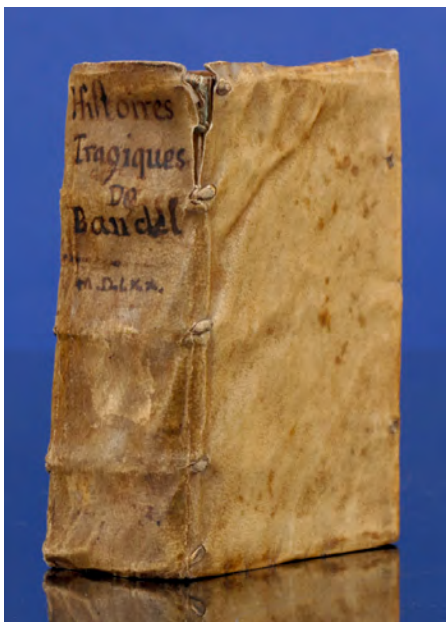 Histoires
Tragiques
De
Bandel
M.D.LXX.